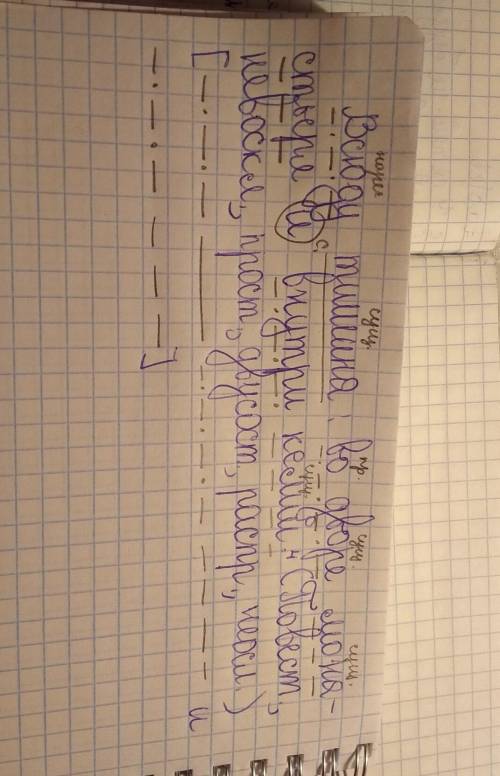 нареч. сущ. пр. сущ. сущ.
Всюду тишина: во дворе мона-
с. сущ.
стыря и внутри кельи. (Повест.,
невоскл., прост., двусост., распр., неосл.)
[ и
]